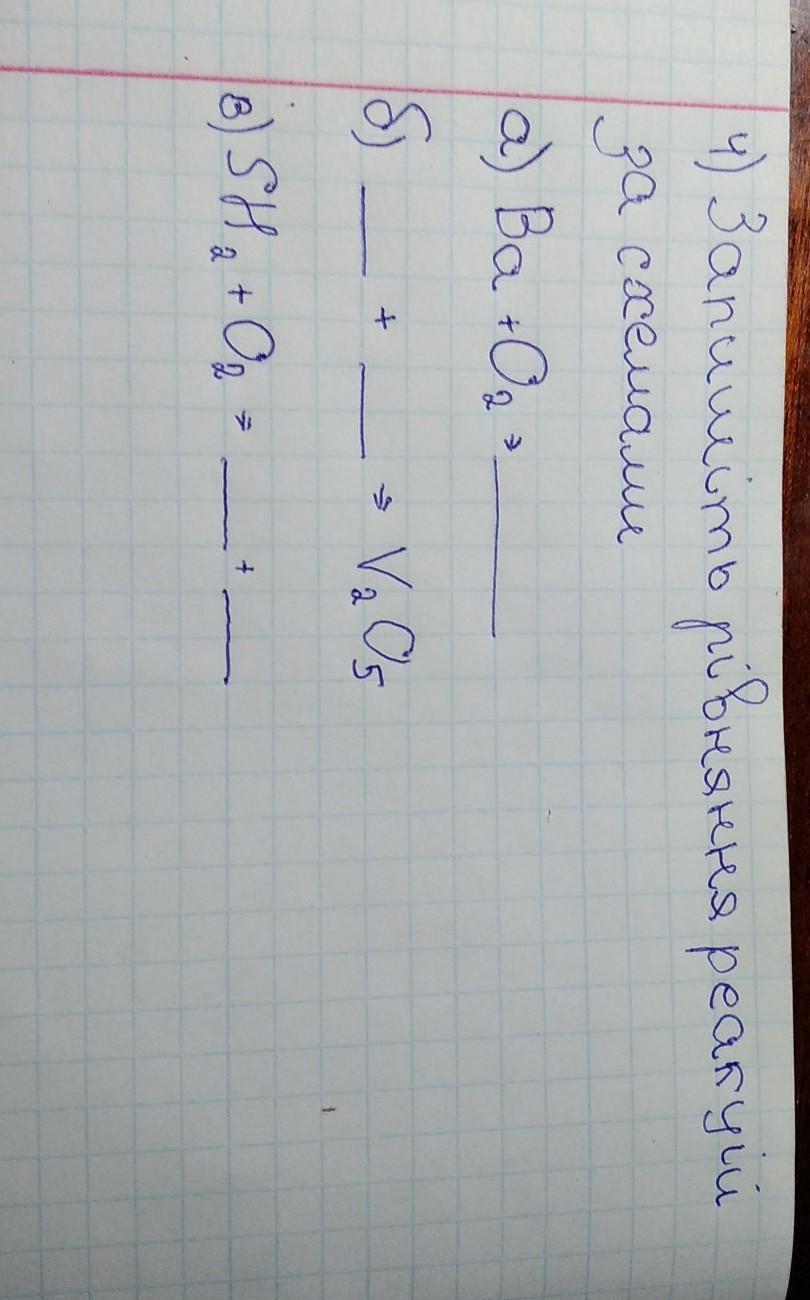 4) Запишіть рівняння реакцій
за схемами
а) Ba + O₂ → ____
б) ___ + ___ → V₂O₅
в) SH₂ + O₂ → ___ + ___